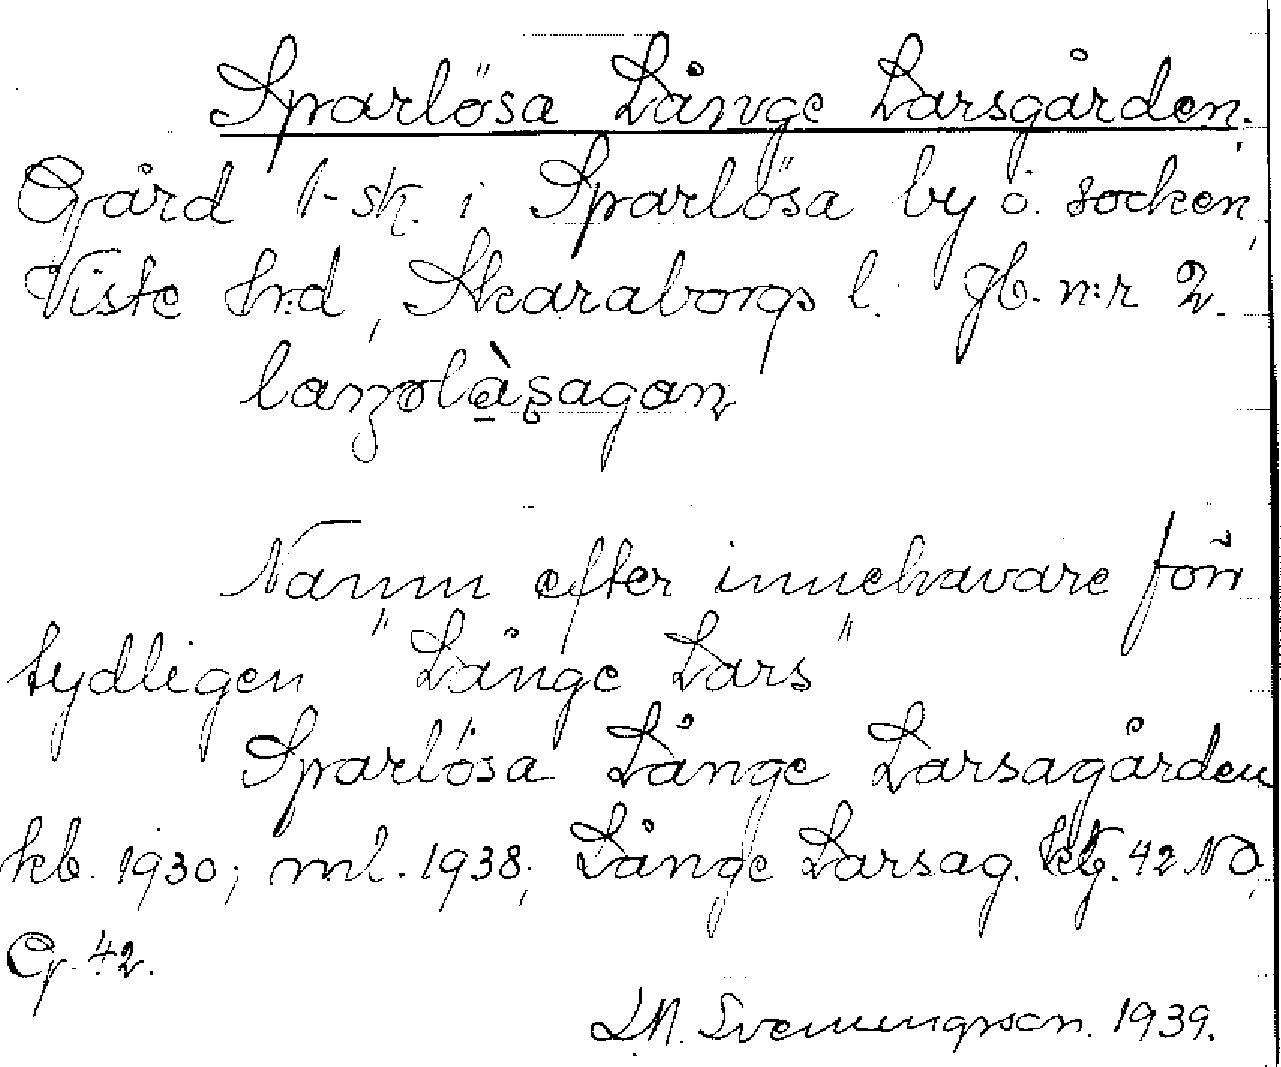 Sparlösa Långe Larsgården.
Gård 1-sk. i Sparlösa by o. socken,
Viste hrd, Skaraborgs l. Jb. n:r 2.
Namn efter innehavare för
tydligen "Långe Lars"
Sparlösa Långe Larsagården
kb. 1930; ml. 1938; Långe Larsag. ktg. 42 NO,
G. 42.
1939.